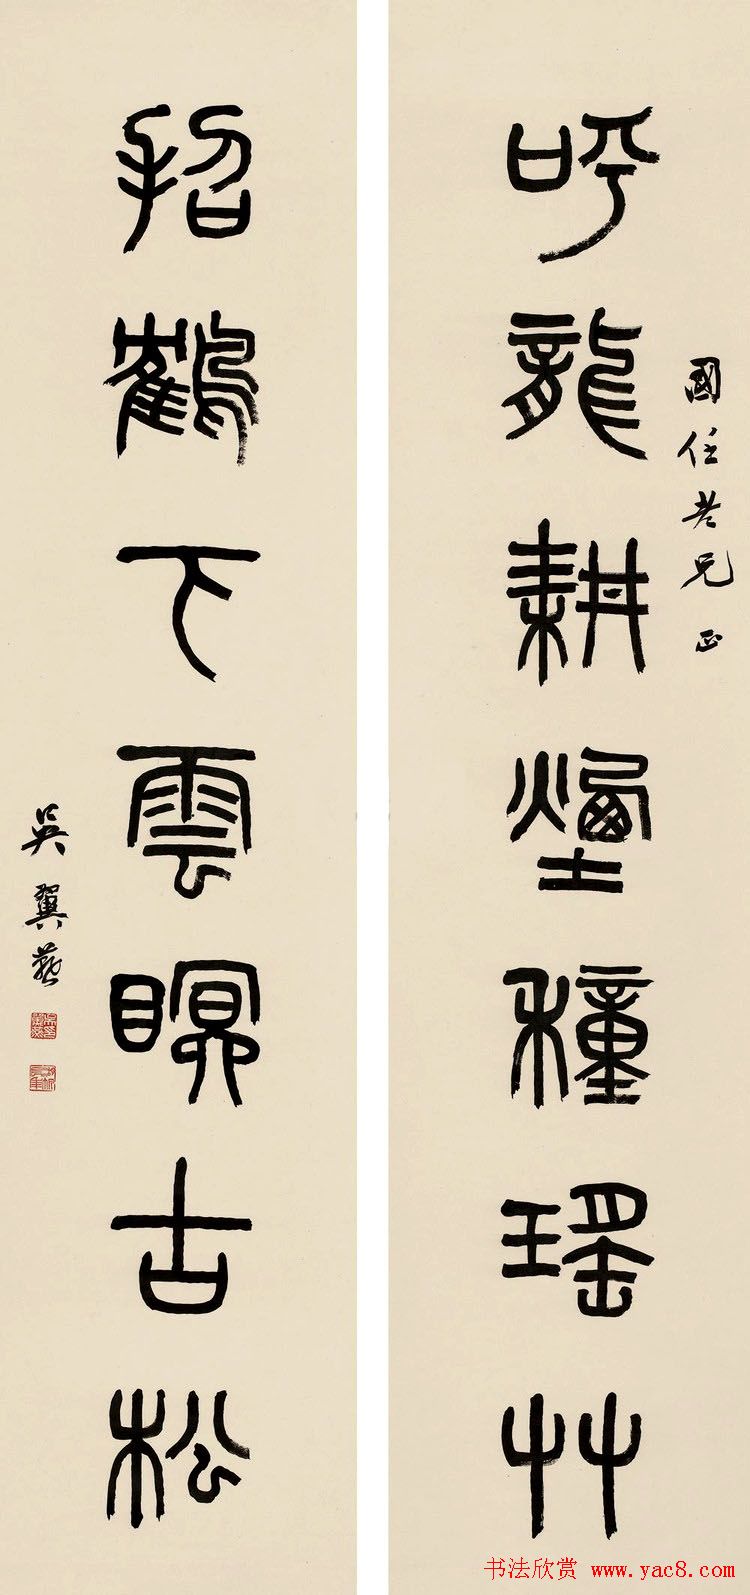 呼龍耕煙種瑤艸
國任老兄正
招鶴下雲瞑古松
吳翼燕
书法欣赏 www.yac8.com